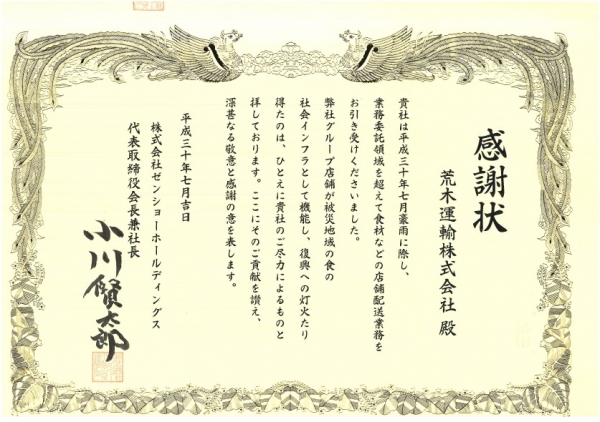 感謝状
荒木運輸株式会社 殿
貴社は平成三十年七月豪雨に際し、
業務委託領域を超えて食材などの店舗配送業務を
お引き受けくださいました。
弊社グループ店舗が被災地域の食の
社会インフラとして機能し、復興への灯火たり
得たのは、ひとえに貴社のご尽力によるものと
拝しております。ここにそのご貢献を讃え、
深甚なる敬意と感謝の意を表します。
平成三十年七月吉日
株式会社ゼンショーホールディングス
代表取締役会長兼社長
小川賢太郎